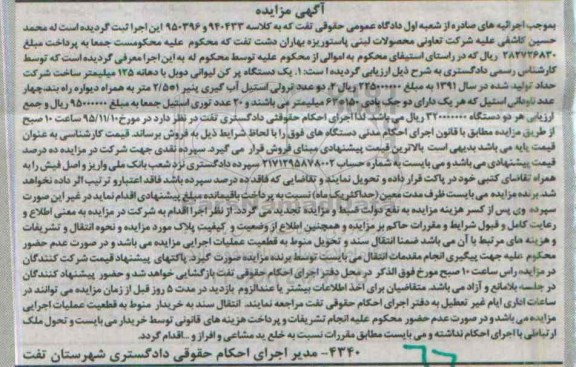 آگهی مزایده
بموجب اجرائیه های صادره از شعبه اول دادگاه عمومی حقوقی تفت که به کلاسه ۹۴۰۴۳۳ و ۹۵۰۳۹۶ این اجرا ثبت گردیده است له محمد
حسین کاشفی علیه شرکت تعاونی محصولات لبنی پاستوریزه بهاران دشت تفت که محکوم علیه محکومست جمعا به پرداخت مبلغ
۲۸۲۷۲۶۸۳۰ ریال که در راستای استیفای محکوم به اموالی از محکوم علیه توسط محکوم له به این اجرا معرفی گردیده است که توسط
کارشناس رسمی دادگستری به شرح ذیل ارزیابی گردیده است: ۱. یک دستگاه پر کن لیوانی دوبل با دهانه ۱۲۵ میلیمتر ساخت شرکت
حداد تولید شده در سال ۱۳۹۱ به مبلغ ۲۲۵۰۰۰۰۰۰ ریال ۲. دو عدد ترولی استیل آب گیری پنیر ۱*۲/۵ متر به همراه دیواره راه بند، چهار
عدد ناودانی استیل که هر یک دارای دو جک بادی ۱۵۰*۶۳ میلیمتر می باشند و ۲۰ عدد توری استیل جمعا به مبلغ ۹۵۰۰۰۰۰۰ ریال و جمع
ارزیابی هر دو دستگاه ۳۲۰۰۰۰۰۰۰ ریال می باشد لذا اجرای احکام حقوقی دادگستری تفت در نظر دارد در مورخ ۹۵/۱۱/۱۰ ساعت ۱۰ صبح
از طریق مزایده مطابق با قانون اجرای احکام مدنی دستگاه های فوق را با لحاظ شرایط ذیل به فروش برساند. قیمت کارشناسی به عنوان
قیمت پایه می باشد بدیهی است بالاترین قیمت پیشنهادی مبنای فروش قرار می گیرد. سپرده نقدی جهت شرکت در مزایده ده درصد
قیمت پیشنهادی می باشد و می بایست به شماره حساب ۲۱۷۱۲۹۵۸۷۸۰۰۲ سپرده دادگستری نزد شعب بانک ملی واریز و اصل فیش را به
همراه تقاضای کتبی خود در پاکت قرار داده و تحویل نمایند و تقاضایی که فاقد ده درصد سپرده باشد فاقد اعتبار و ترتیب اثر داده نخواهد
شد. برنده مزایده می بایست ظرف مدت معین (حداکثر یک ماه) نسبت به پرداخت باقیمانده مبلغ پیشنهادی اقدام نماید در غیر این صورت
سپرده وی پس از کسر هزینه مزایده به نفع دولت ضبط و مزایده تجدید می گردد. از نظر اجرا اقدام به شرکت در مزایده به معنی اطلاع و
رعایت کامل و قبول شرایط و مقررات حاکم بر مزایده و همچنین اطلاع از وضعیت و کیفیت پلاک مورد مزایده و نحوه انتقال و تشریفات
و هزینه های مرتبط با آن می باشد ضمنا انتقال سند و تحویل منوط به قطعیت عملیات اجرایی مزایده می باشد و در صورت عدم حضور
محکوم علیه جهت پیگیری انجام مقدمات انتقال می بایست توسط برنده مزایده صورت گیرد. پاکتهای پیشنهاد قیمت شرکت کنندگان
در مزایده راس ساعت ۱۰ صبح مورخ فوق الذکر در محل دفتر اجرای احکام حقوقی تفت بازگشایی خواهد شد و حضور پیشنهاد کنندگان
در جلسه بلامانع و آزاد می باشد. متقاضیان برای اخذ اطلاعات بیشتر یا عندالزوم بازدید در مدت ۵ روز قبل از زمان مزایده می توانند در
ساعات اداری ایام غیر تعطیل به دفتر اجرای احکام حقوقی تفت مراجعه نمایند. انتقال سند به خریدار منوط به قطعیت عملیات اجرایی
مزایده می باشد و در صورت عدم حضور محکوم علیه انجام تشریفات و پرداخت هزینه های قانونی توسط خریدار می بایست و تحویل ملک
ارتباطی با اجرای احکام نداشته و می بایست مطابق مقررات نسبت به خلع ید مشاعی و افراز و ... اقدام گردد.
۴۳۴۰- مدیر اجرای احکام حقوقی دادگستری شهرستان تفت